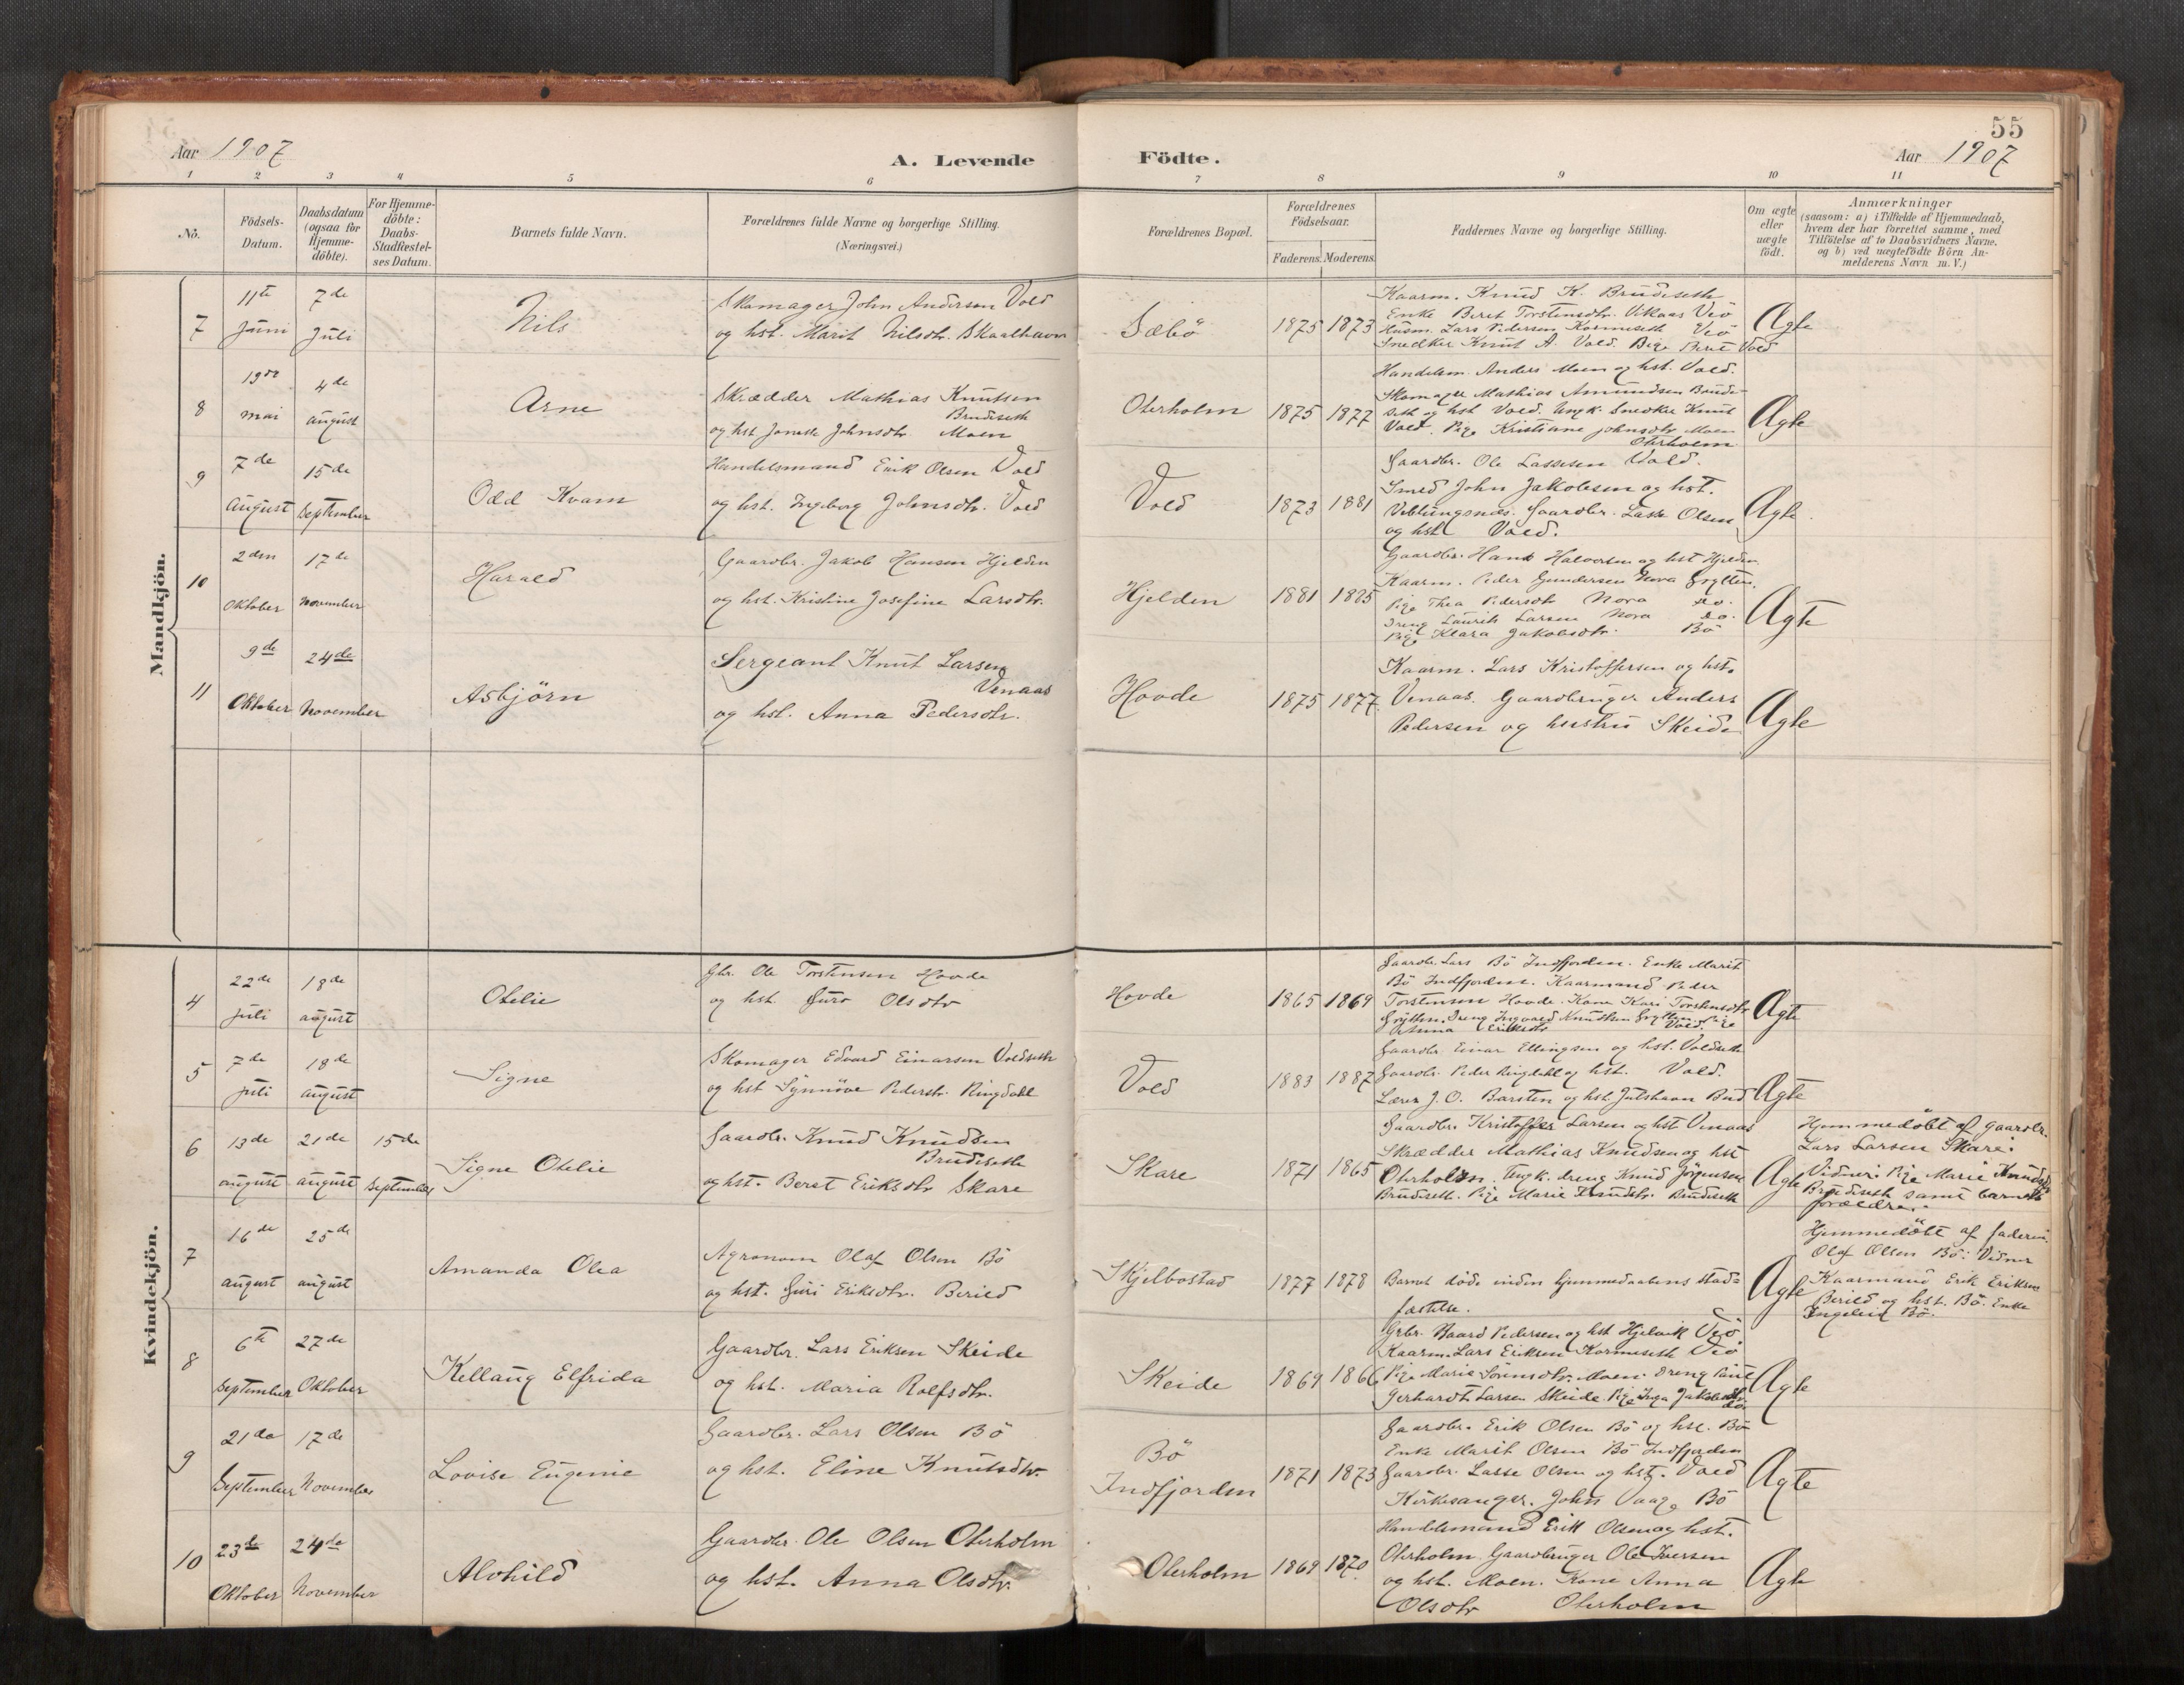 55
Aar 1907
A. Levende
Födte.
Aar 1907
1 2 3 4 5 6 7 8 9 10 11
No.
Födsels-
Datum.
Daabsdatum
(ogsaa for
Hjemme-
döbte).
For Hjemme-
döbte:
Daabs-
Stadfæstel-
ses Datum.
Barnets fulde Navn.
Forældrenes fulde Navne og borgerlige Stilling.
(Næringsvei.)
Forældrenes Bopæl.
Forældrenes
Födselsaar.
Faderens. Moderens.
Faddernes Navne og borgerlige Stilling.
Om ægte
eller
uægte
födt.
Anmærkninger
(saasom: a) i Tilfælde af Hjemmedaab,
hvem der har forrettet samme, med
Tilföielse af to Daabsvidners Navne.
og b) ved uægtefödte Börn An-
melderens Navn m. V.)
Mandkjön.
7
11te
Juni
7de
Juli
Nils
Skomager John Andersen Vold
og hst. Marit Nilsdtr. Skaalhavn
Sæbö
1875 1873
Kaarm. Knud K. Brudeseth
Enke Beret Torstensdtr. Vikaas Veö
Husm. Lars Pedersen Kormeseth Veö
Snedker Knut A. Vold. Pige Beret Vold
Ægte
8
19de
mai
4de
august
Arne
Skrædder Mathias Knutsen
Brudeseth
og hst Johnsdtr. Moen
Oterholm
1875 1877
Handelsm. Anders Moen og hst. Vold.
Skomager Mathias Amundsen Brude-
seth og hst Vold. Ungk. Snedker Knut
Vold. Pige Kristiane Johnsdtr Moen
Oterholm
Ægte
9
7de
August
15de
September
Odd Kvam
Handelsmand Erik Olsen Vold
og hst. Ingeborg Johnsdtr. Vold
Vold
1873 1881
Gaardbr. Ole Lassesen Vold.
Smed John Jakobsen og hst.
Veblungsnæs. Gaardbr. Lasse Olsen
og hst Vold.
Ægte.
10
2den
Oktober
17de
November
Harald
Gaardbr. Jakob Hansen Hjelden
og hst. Kristine Josefine Larsdtr.
Hjelden
1881 1885
Gaardbr. Hans Halvorsen og hst Hjelden
Kaarm. Peder Gundersen Nora Grytten.
Pige Thea Pedersdtr Nora do.
Dreng Laurits Larsen Nora do.
Pige Klara Jakobsdtr. Bö
Ægte
11
9de
Oktober
24de
November
Asbjörn
Sergeant Knut Larsen
Venaas
og hst. Anna Pedersdtr.
Hovde
1875 1877.
Kaarm. Lars Kristoffersen og hst.
Venaas. Gaardbruger Anders
Pedersen og hustru Skeide
Ægte
Kvindekjön.
4
22de
juli
18de
august
Otelie
Gbr. Ole Torstensen Hovde
og hst. Guro Olsdtr
Hovde
1865 1869
Gaardbr. Lars Bö Indfjorden. Enke Marit
Bö Indfjorden. Kaarmand Peder
Torstensen Hovde. Kone Kari Torstensdtr
Grytten. Dreng Ingvald Knudsen Grytten. Pige
Anna Eriksdtr Vold.
Ægte
5
7de
juli
18de
august
Signe
Skomager Edvard Einarsen Voldseth
og hst Synnöve Pedersdtr. Ringdahl
Vold
1883 1887
Gaardbr. Einar Ellingsen og hst. Voldseth
Gaardbr. Peder Ringdahl og hst. Vold.
Lærer J. O. Barsten og hst. Julshavn Bud
Ægte
6
13de
august
21de
august
15de
September
Signe Otelie
Gaardbr. Knud Knudsen
Brudeseth
og hst. Beret Eriksdtr Skare
Skare
1871 1865
Gaardbr. Kristoffer Larsen og hst Venaas
Skrædder Mathias Knudsen og hst
Oterholm. Ungk. dreng Knud Jörgensen
Brudeseth. Pige Marie Knudsdtr. Brudeseth
Ægte
Hjemmedöbt af Gaardbr.
Lars Larsen Skare.
Vidner: Pige Marie Knudsdtr
Brudeseth samt barnets
forældre.
7
16de
august
25de
august
Amanda Olea
Agronom Olaf Olsen Bö
og hst. Guri Eriksdtr. Berild
Skjelbostad
1877 1878
Barnet döde inden hjemmedaabens stad-
fæstelse.
Ægte
Hjemmedöbt af faderen
Olaf Olsen Bö: Vidner
Kaarmand Erik Eriksen
Berild og hst. Bö. Enke
Ingeleiv Bö.
8
6te
September
27de
Oktober
Kellaug Elfrida
Gaardbr. Lars Eriksen Skeide
og hst. Maria Rolfsdtr.
Skeide
1869 1866
Grbr. Baard Pedersen og hst Hjelvik Veö.
Kaarm. Lars Eriksen Kormeseth Veö
Pige Marie Sörensdtr. Moen. Dreng Paul
Gerhardt Larsen Skeide. Pige Inga Jakobsdtr
do.
Ægte
9
21de
September
17de
November
Lovise Eugenie
Gaardbr. Lars Olsen Bö
og hst. Eline Knutsdtr.
Bö
Indfjorden
1871 1873
Gaardbr. Erik Olsen Bö og hst. Bö
Enke Marit Olsen Bö Indfjorden
Gaardbr. Lasse Olsen og hst. Vold
Kirkesanger. John Vaage Bö
Ægte
10
23de
Oktober
24de
November
Alvhild
Gaardbr. Ole Olsen Oterholm
og hst. Anna Olsdtr.
Oterholm
1869 1870.
Handelsmand Erik Olsen og hst.
Oterholm. Gaardbruger Ole Iversen
og hst. Moen. Kone Anna
Olsdtr Oterholm
Ægte